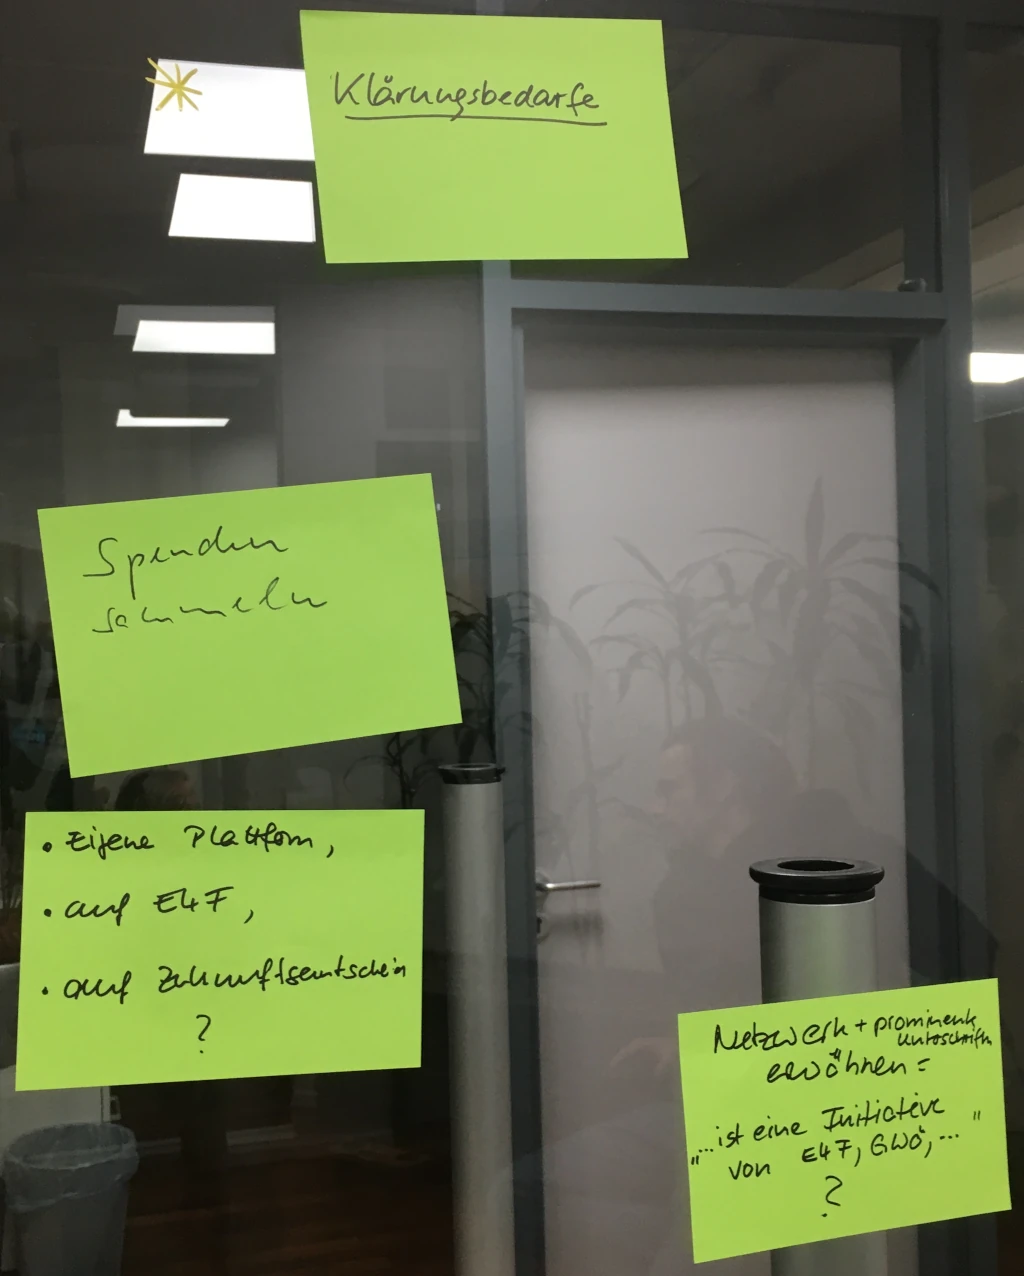 Klärungsbedarfe
Spenden
sammeln
• Eigene Plattform,
• auf E4F,
• auf
?
Netzwerk + prominente
Unterschriften
erwähnen =
„...ist eine Initiative
von E4F, GWÖ, ..."
?